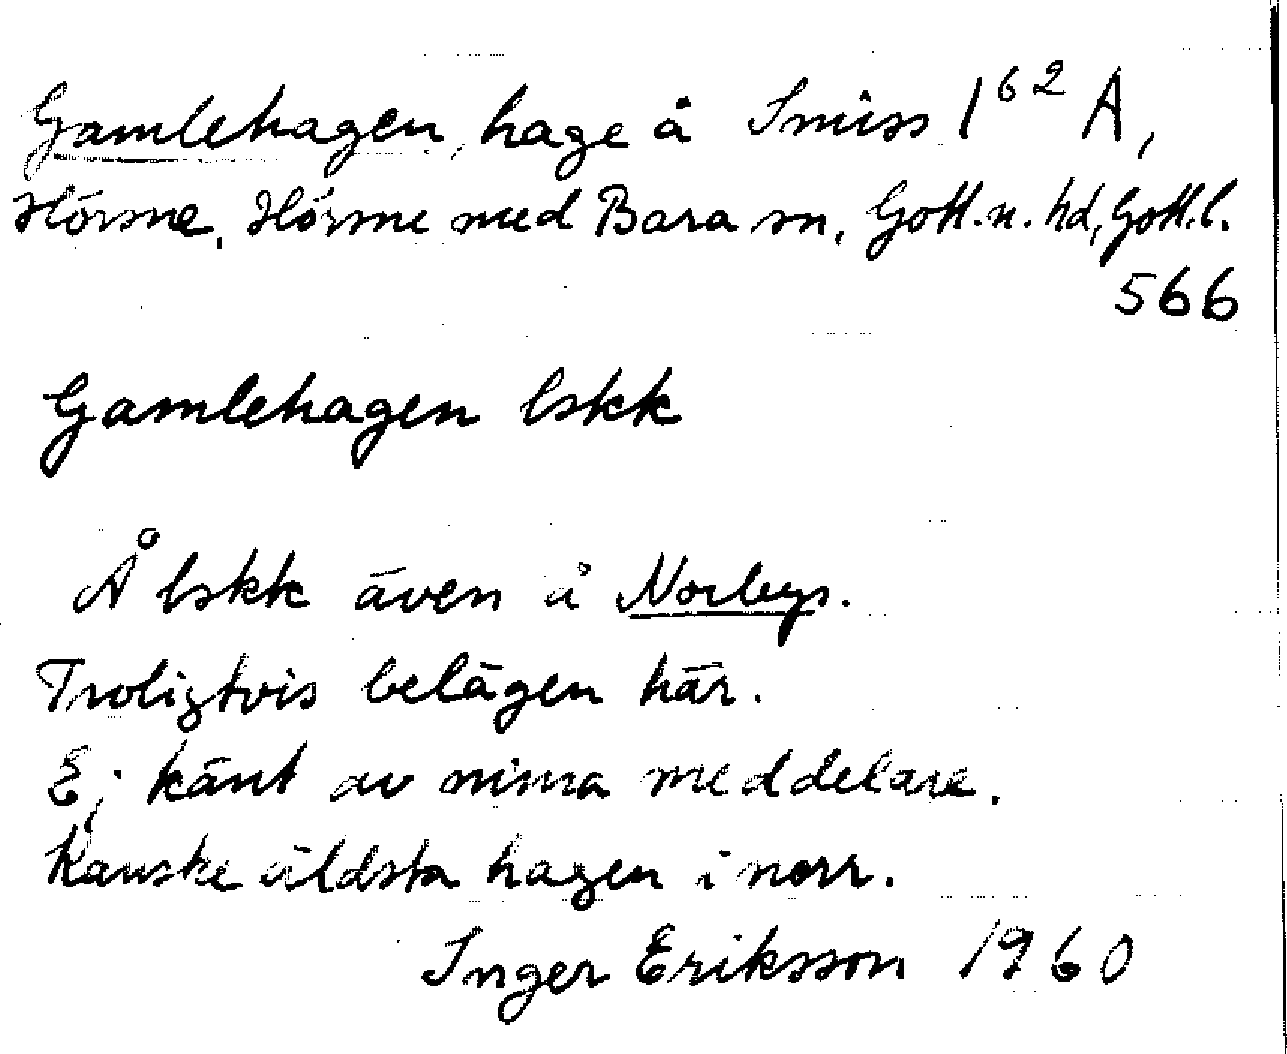 Gamlehagen, hage å Smiss 1⁶² A,
Hörsne, Hörsne med Bara sn, Gotl. n. hd, Gotl. l.
566
Gamlehagen lskk
Å lskk även å Norbys.
Troligtvis belägen här.
Ej känt av mina meddelare.
Kanske äldsta hagen i norr.
Inger Eriksson 1960